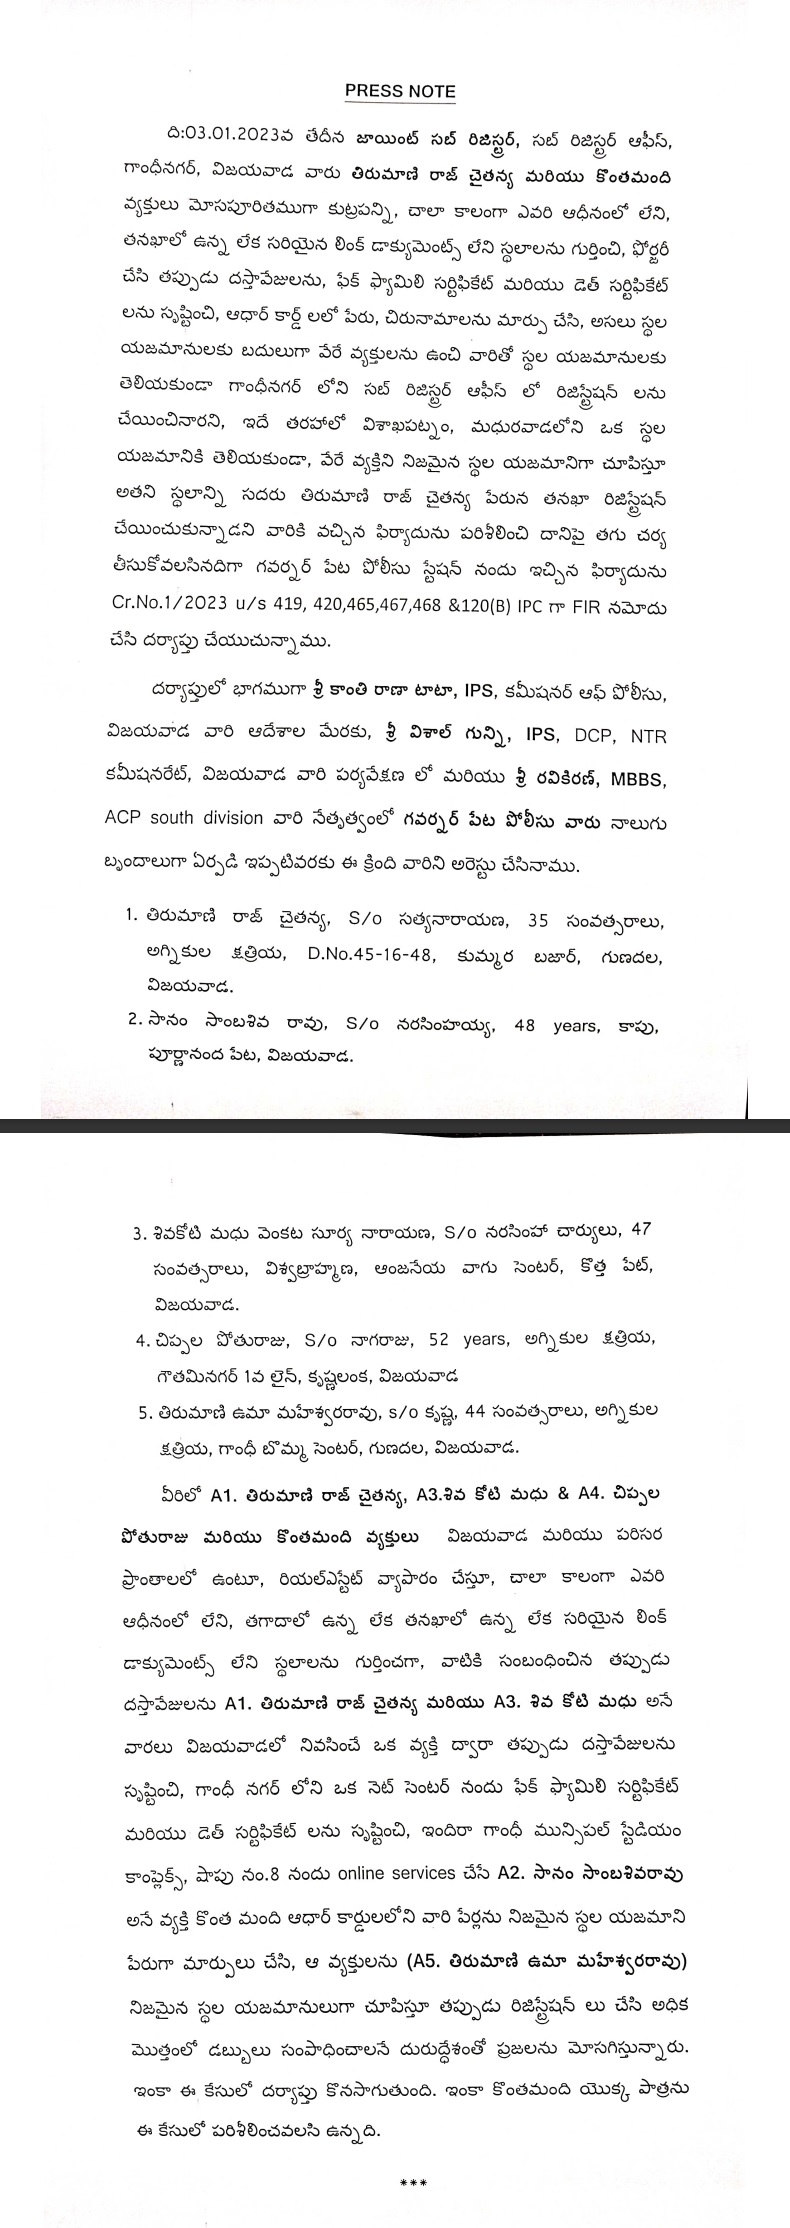 PRESS NOTE
ది:03.01.2023వ తేదీన జాయింట్ సబ్ రిజిస్ట్రర్, సబ్ రిజిస్ట్రర్ ఆఫీస్,
గాంధీనగర్, విజయవాడ వారు తిరుమాణి రాజ్ చైతన్య మరియు కొంతమంది
వ్యక్తులు మోసపూరితముగా కుట్రపన్ని, చాలా కాలంగా ఎవరి ఆధీనంలో లేని,
తనఖాలో ఉన్న లేక సరియైన లింక్ డాక్యుమెంట్స్ లేని స్థలాలను గుర్తించి, ఫోర్జరీ
చేసి తప్పుడు దస్తావేజులను, ఫేక్ ఫ్యామిలి సర్టిఫికేట్ మరియు డెత్ సర్టిఫికేట్
లను సృష్టించి, ఆధార్ కార్డ్ లలో పేరు, చిరునామాలను మార్పు చేసి, అసలు స్థల
యజమానులకు బదులుగా వేరే వ్యక్తులను ఉంచి వారితో స్థల యజమానులకు
తెలియకుండా గాంధీనగర్ లోని సబ్ రిజిస్ట్రర్ ఆఫీస్ లో రిజిస్ట్రేషన్ లను
చేయించినారని, ఇదే తరహాలో విశాఖపట్నం, మధురవాడలోని ఒక స్థల
యజమానికి తెలియకుండా, వేరే వ్యక్తిని నిజమైన స్థల యజమానిగా చూపిస్తూ
అతని స్థలాన్ని సదరు తిరుమాణి రాజ్ చైతన్య పేరున తనఖా రిజిస్ట్రేషన్
చేయించుకున్నాడని వారికి వచ్చిన ఫిర్యాదును పరిశీలించి దానిపై తగు చర్య
తీసుకోవలసినదిగా గవర్నర్ పేట పోలీసు స్టేషన్ నందు ఇచ్చిన ఫిర్యాదును
Cr.No.1/2023 u/s 419, 420,465,467,468 &120(B) IPC గా FIR నమోదు
చేసి దర్యాప్తు చేయుచున్నాము.
దర్యాప్తులో భాగముగా శ్రీ కాంతి రాణా టాటా, IPS, కమీషనర్ ఆఫ్ పోలీసు,
విజయవాడ వారి ఆదేశాల మేరకు, శ్రీ విశాల్ గున్ని, IPS, DCP, NTR
కమీషనరేట్, విజయవాడ వారి పర్యవేక్షణ లో మరియు శ్రీ రవికిరణ్, MBBS,
ACP south division వారి నేతృత్వంలో గవర్నర్ పేట పోలీసు వారు నాలుగు
బృందాలుగా ఏర్పడి ఇప్పటివరకు ఈ క్రింది వారిని అరెస్టు చేసినాము.
1. తిరుమాణి రాజ్ చైతన్య, S/o సత్యనారాయణ, 35 సంవత్సరాలు,
అగ్నికుల క్షత్రియ, D.No.45-16-48, కుమ్మర బజార్, గుణదల,
విజయవాడ.
2. సానం సాంబశివ రావు, S/o నరసింహయ్య, 48 years, కాపు,
పూర్ణానంద పేట, విజయవాడ.
3. శివకోటి మధు వెంకట సూర్య నారాయణ, S/o నరసింహా చార్యులు, 47
సంవత్సరాలు, విశ్వబ్రాహ్మణ, ఆంజనేయ వాగు సెంటర్, కొత్త పేట్,
విజయవాడ.
4. చిప్పల పోతురాజు, S/o నాగరాజు, 52 years, అగ్నికుల క్షత్రియ,
గౌతమినగర్ 1వ లైన్, కృష్ణలంక, విజయవాడ
5. తిరుమాణి ఉమా మహేశ్వరరావు, s/o కృష్ణ, 44 సంవత్సరాలు, అగ్నికుల
క్షత్రియ, గాంధీ బొమ్మ సెంటర్, గుణదల, విజయవాడ.
వీరిలో A1. తిరుమాణి రాజ్ చైతన్య, A3.శివ కోటి మధు & A4. చిప్పల
పోతురాజు మరియు కొంతమంది వ్యక్తులు విజయవాడ మరియు పరిసర
ప్రాంతాలలో ఉంటూ, రియల్ఎస్టేట్ వ్యాపారం చేస్తూ, చాలా కాలంగా ఎవరి
ఆధీనంలో లేని, తగాదాలో ఉన్న లేక తనఖాలో ఉన్న లేక సరియైన లింక్
డాక్యుమెంట్స్ లేని స్థలాలను గుర్తించగా, వాటికి సంబంధించిన తప్పుడు
దస్తావేజులను A1. తిరుమాణి రాజ్ చైతన్య మరియు A3. శివ కోటి మధు అనే
వారలు విజయవాడలో నివసించే ఒక వ్యక్తి ద్వారా తప్పుడు దస్తావేజులను
సృష్టించి, గాంధీ నగర్ లోని ఒక నెట్ సెంటర్ నందు ఫేక్ ఫ్యామిలి సర్టిఫికేట్
మరియు డెత్ సర్టిఫికేట్ లను సృష్టించి, ఇందిరా గాంధీ మున్సిపల్ స్టేడియం
కాంప్లెక్స్, షాపు నం.8 నందు online services చేసే A2. సానం సాంబశివరావు
అనే వ్యక్తి కొంత మంది ఆధార్ కార్డులలోని వారి పేర్లను నిజమైన స్థల యజమాని
పేరుగా మార్పులు చేసి, ఆ వ్యక్తులను (A5. తిరుమాణి ఉమా మహేశ్వరరావు)
నిజమైన స్థల యజమానులుగా చూపిస్తూ తప్పుడు రిజిస్ట్రేషన్ లు చేసి అధిక
మొత్తంలో డబ్బులు సంపాధించాలనే దురుద్ధేశంతో ప్రజలను మోసగిస్తున్నారు.
ఇంకా ఈ కేసులో దర్యాప్తు కొనసాగుతుంది. ఇంకా కొంతమంది యొక్క పాత్రను
ఈ కేసులో పరిశీలించవలసి ఉన్నది.
***